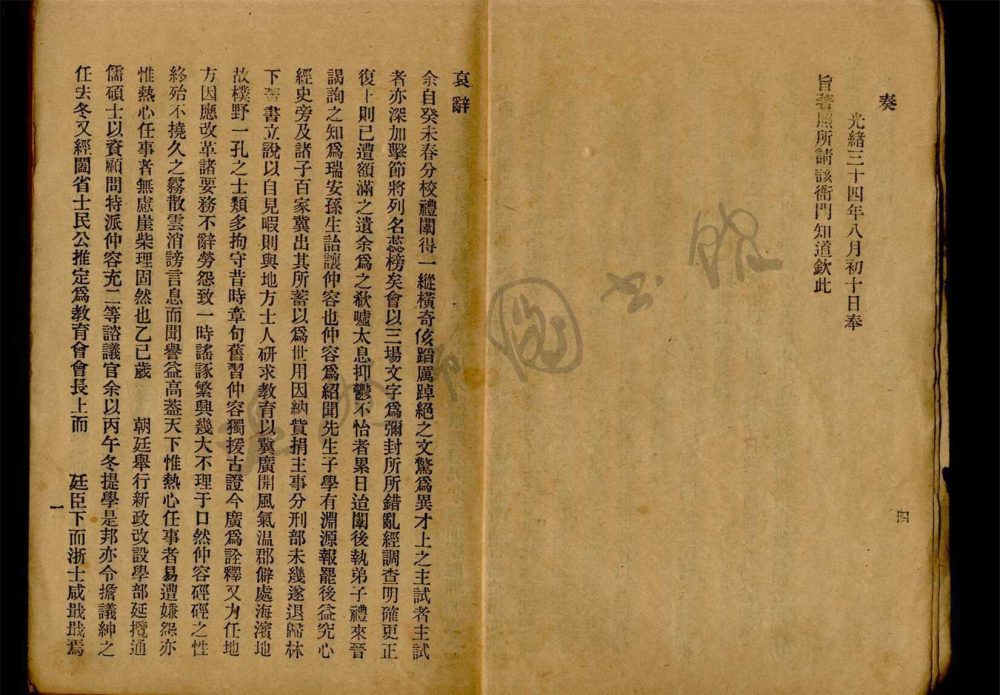 奏
光緒三十四年八月初十日奉
旨著照所請該衙門知道欽此
四
哀辭
余自癸未春分校禮闈得一縱橫奇侅蹈厲踔絕之文驚爲異才上之主試者主試
者亦深加擊節將列名蕊榜矣會以三場文字爲彌封所所錯亂經調查明確更正
復上則已遭額滿之遺余爲之欷噓太息抑鬱不怡者累日迨闈後執弟子禮來晉
謁詢之知爲瑞安孫生詒讓仲容也仲容爲紹聞先生子學有淵源報罷後益究心
經史旁及諸子百家冀出其所蓄以爲世用因納貲捐主事分刑部未幾遂退歸林
下著書立說以自見暇則與地方士人研求教育以冀廣開風氣溫郡僻處海濱地
故樸野一孔之士類多拘守昔時章句舊習仲容獨援古證今廣爲詮釋又力任地
方因應改革諸要務不辭勞怨致一時謠諑繁興幾大不理于口然仲容硜硜之性
終殆不撓久之霧散雲消謗言息而聞譽益高葢天下惟熱心任事者易遭嫌怨亦
惟熱心任事者無慮崖柴理固然也乙巳歲 朝廷舉行新政改設學部延攬通
儒碩士以資顧問特派仲容充二等諮議官余以丙午冬提學是邦亦令擔議紳之
任去冬又經闔省士民公推定爲教育會會長上而 廷臣下而浙士咸戢戢焉
一